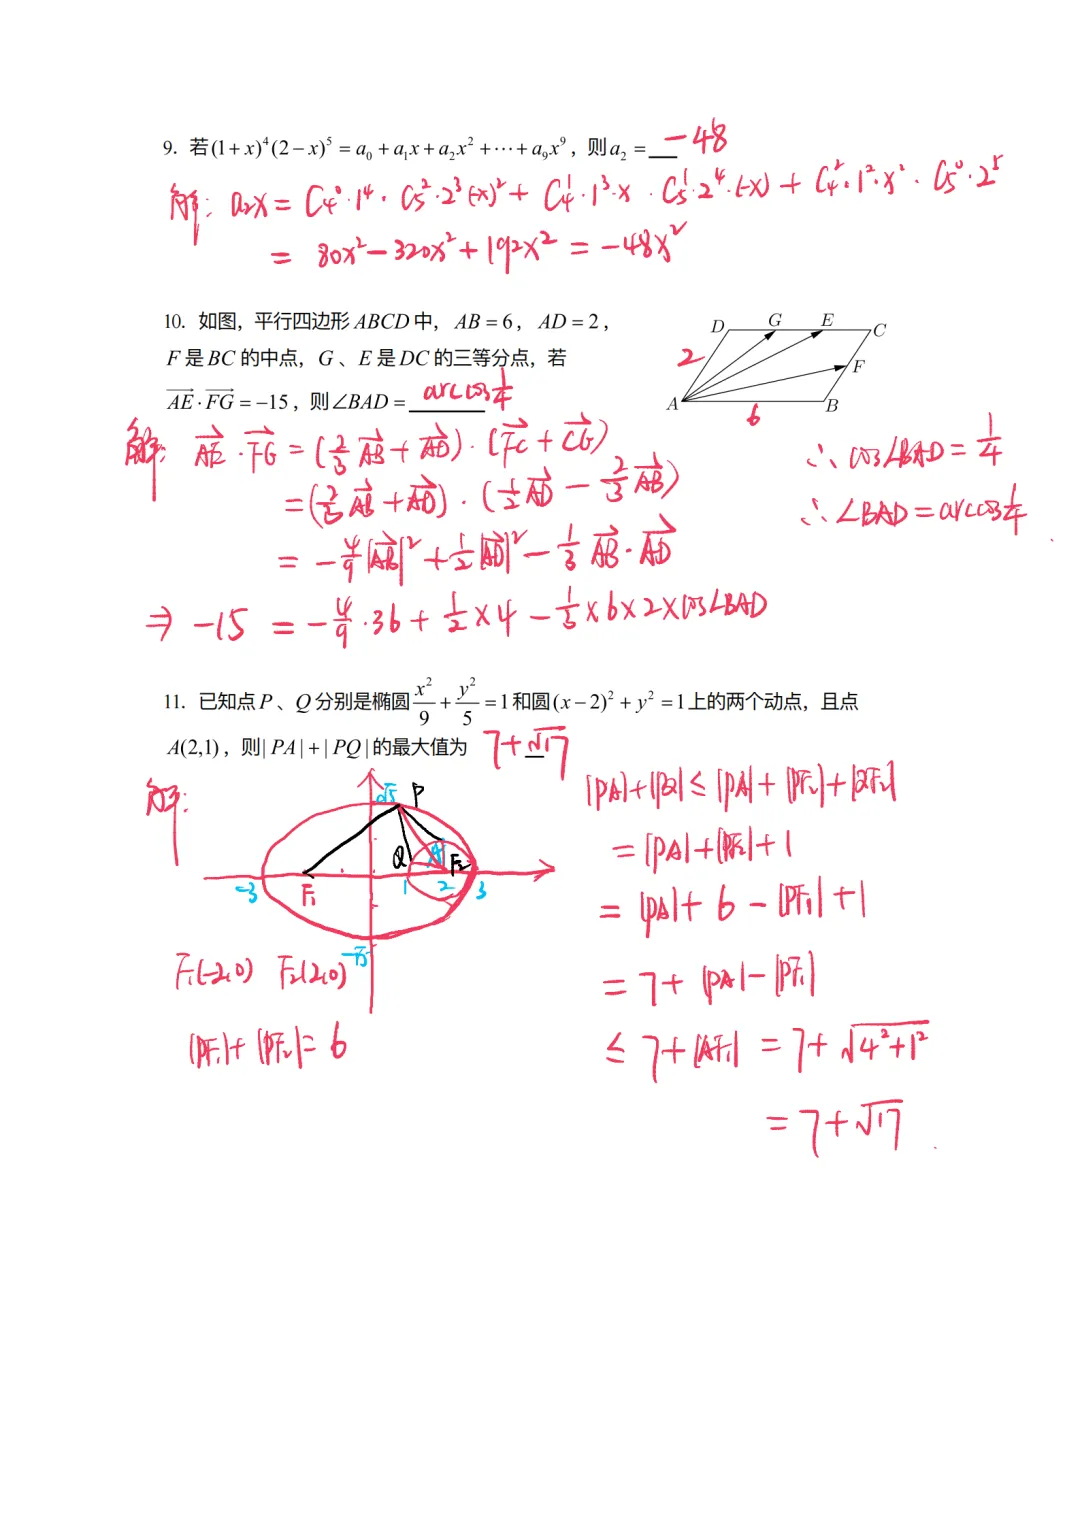 9. 若(1+x)⁴(2−x)⁵ = a₀ + a₁x + a₂x² + ⋯ + a₉x⁹，则a₂ = −48
解: a₂x = C₄⁰·1⁴·C₅²·2³(-x)² + C₄¹·1³·x·C₅¹·2⁴·(-x) + C₄²·1²·x²·C₅⁰·2⁵
= 80x² − 320x² + 192x² = −48x²
10. 如图，平行四边形 ABCD 中，AB = 6，AD = 2，
F 是 BC 的中点，G 、E 是 DC 的三等分点，若
AE→ · FG→ = −15，则∠BAD = arccos 1/4
D G E C
F
2
A 6 B
解: AE→·FG→ = (2/3 AB→ + AD→)·(FC→ + CG→)
= (2/3 AB→ + AD→)·(1/2 AD→ − 2/3 AB→)
= −4/9|AB→|² + 1/2|AD→|² − 1/3 AB→·AD→
⇒ −15 = −4/9·36 + 1/2×4 − 1/3×6×2×cos∠BAD
∴ cos∠BAD = 1/4
∴ ∠BAD = arccos 1/4
11. 已知点 P 、Q 分别是椭圆 x²/9 + y²/5 = 1 和圆 (x−2)² + y² = 1 上的两个动点，且点
A(2,1)，则| PA | + | PQ |的最大值为 7+√17
解:
√5 P
Q A F₂
−3 F₁ 1 2 3
−√5
F₁(-2,0) F₂(2,0)
|PF₁|+|PF₂|= 6
|PA|+|PQ| ≤ |PA|+|PF₂|+|QF₂|
= |PA|+|PF₂|+1
= |PA|+6−|PF₁|+1
= 7+|PA|−|PF₁|
≤ 7+|AF₁| = 7+√4²+1²
= 7+√17